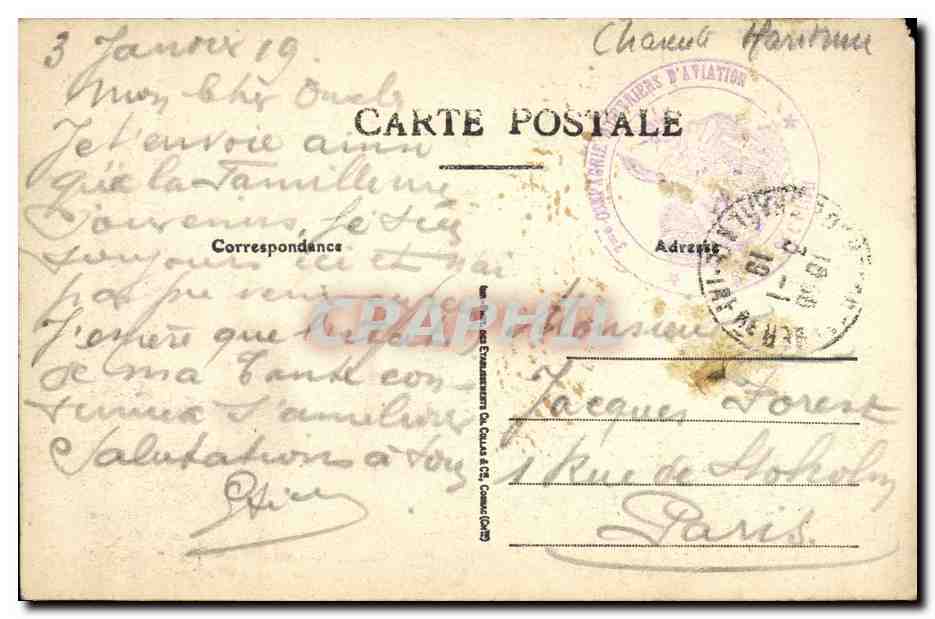 3 Janvier 19.
Charente Maritime
Mon Cher Oncle
CARTE POSTALE
Je t'envoie ainsi
que la Famille
souvenirs, Je suis
toujours ici et j'ai
pas pu venir
J'espère que
de ma Tante con-
tinue s'améliorer
Salutations à tous
Correspondance
Adresse
3me COMPAGNIE OUVRIERS D'AVIATION
18 30
3 -1
19
DES ETABLISSEMENTS CH. COLLAS & Cie, COGNAC (Chte)
Monsieur
Jacques Forest
1 Rue de Stokolm
Paris.
CPAPHIL